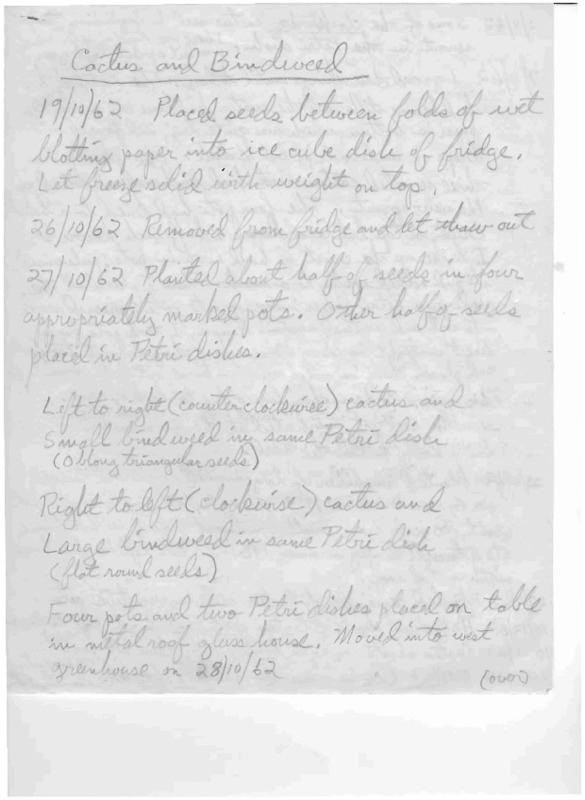 Cactus and Bindweed
19/10/62 Placed seeds between folds of wet
blotting paper into ice cube dish of fridge.
Let freeze solid with weight on top.
26/10/62 Removed from fridge and let thaw out
27/10/62 Planted about half of seeds in four
appropriately marked pots. Other half of seeds
placed in Petri dishes.
Left to right (counter clockwise) cactus and
Small bindweed in same Petri dish
(Oblong triangular seeds)
Right to left (clockwise) cactus and
Large bindweed in same Petri dish
(flat round seeds)
Four pots and two Petri dishes placed on table
in metal roof glass house. Moved into west
greenhouse on 28/10/62
(over)